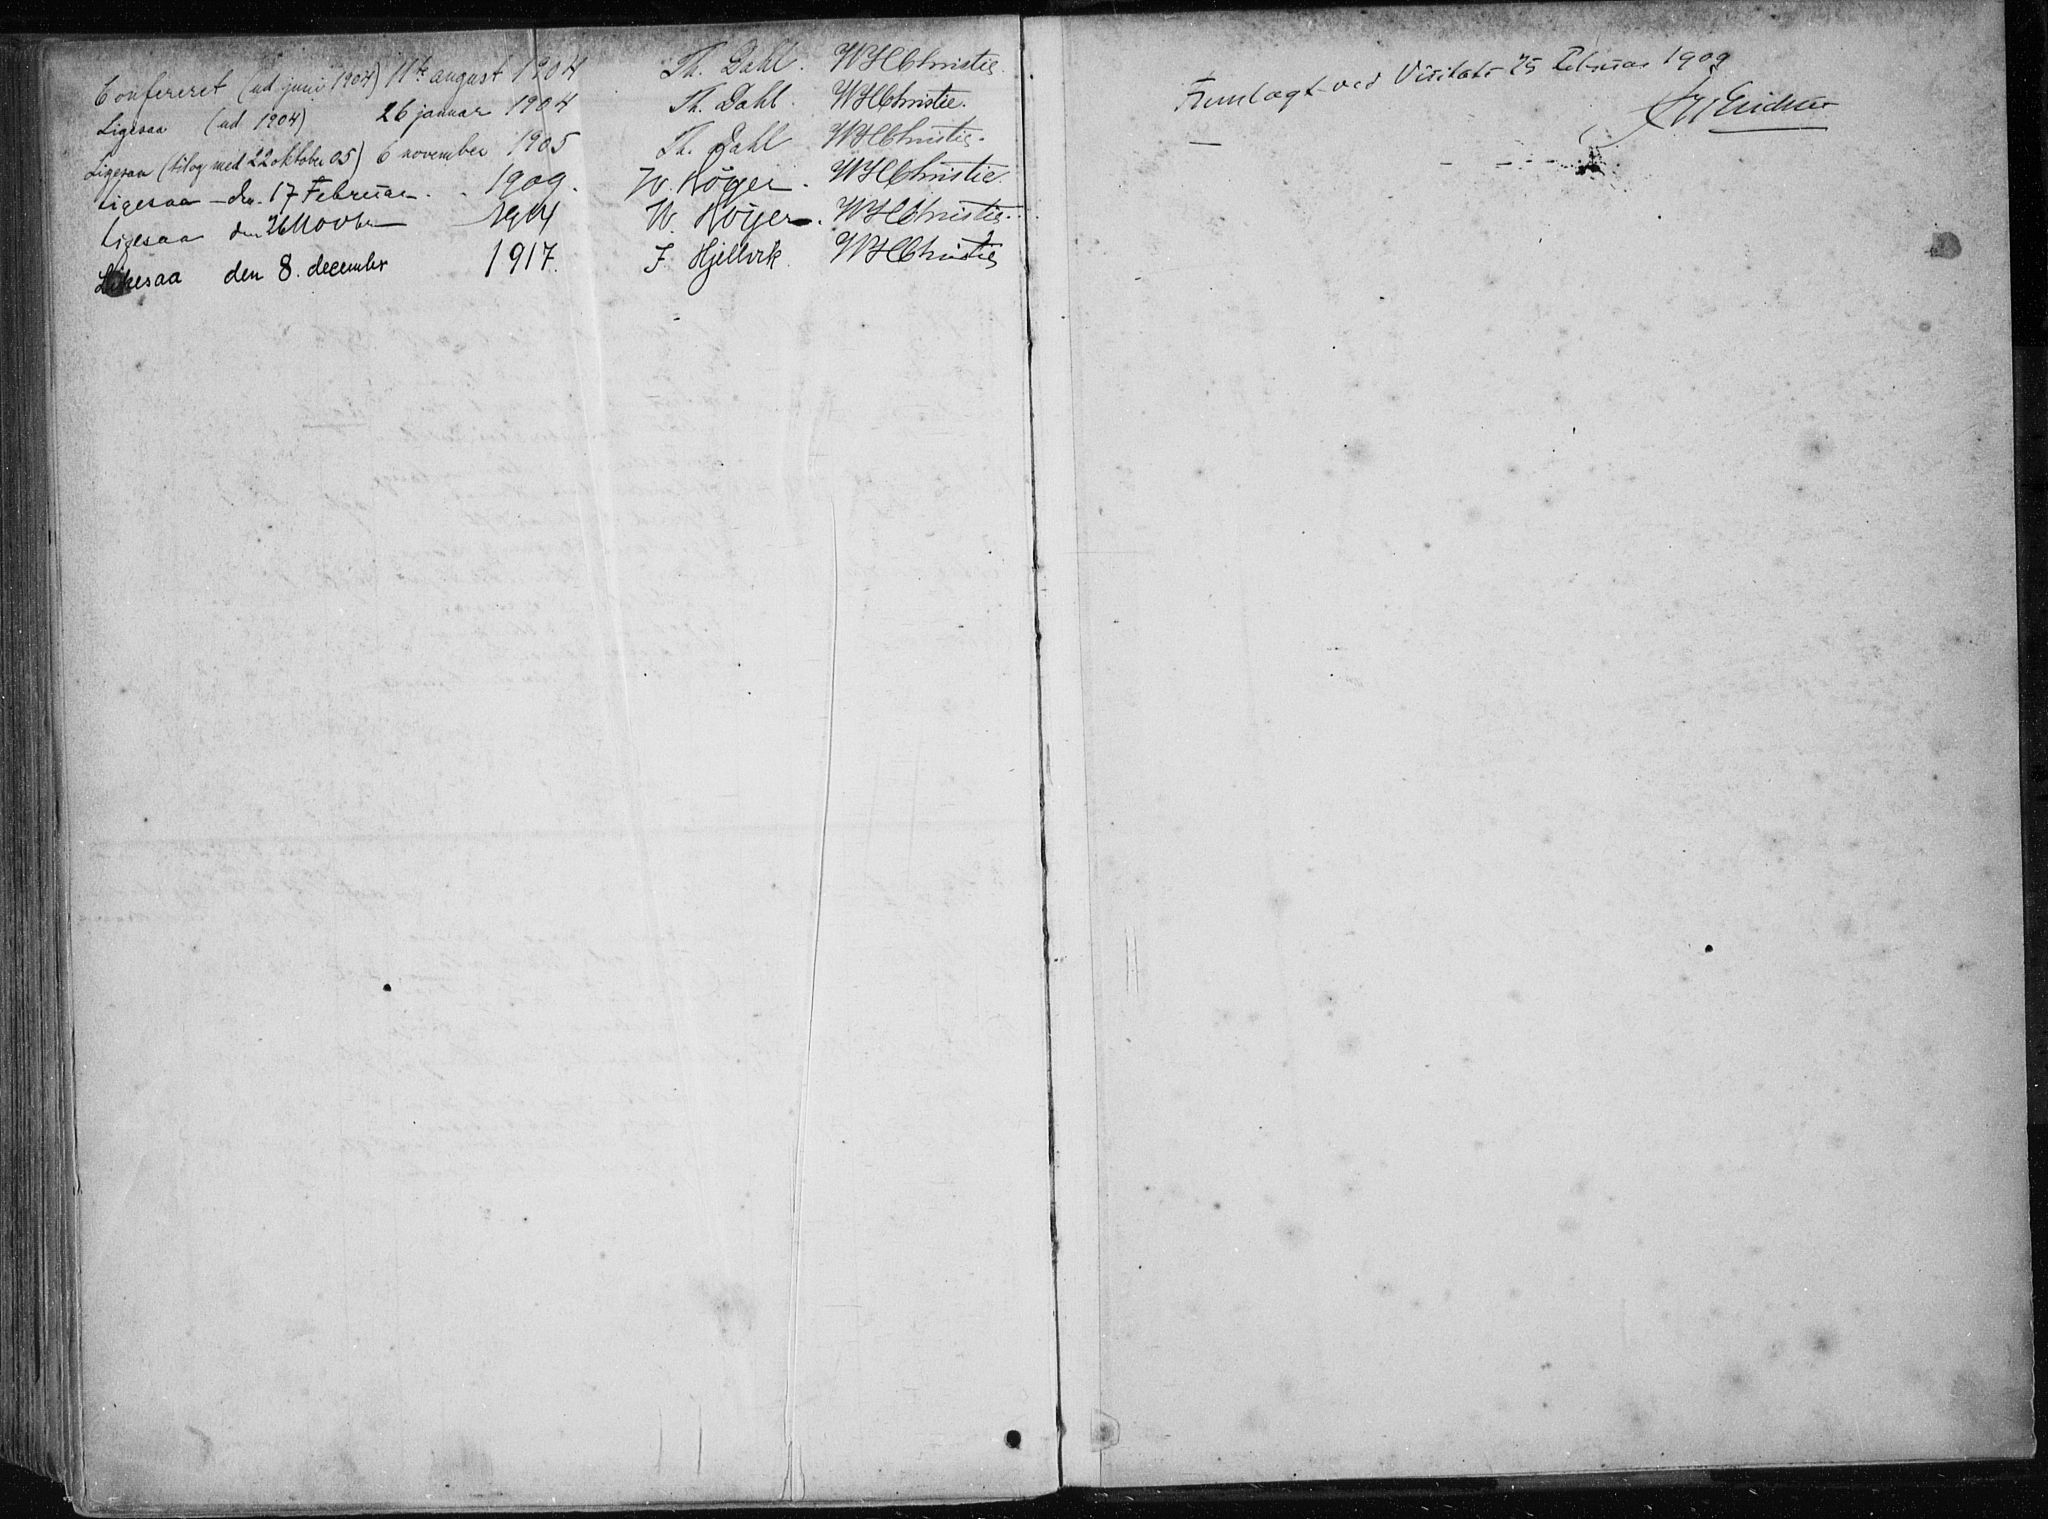 Confereret (ud juni 1904) 11te august 1904 Th. Dahl. WHChristie.
Ligesaa (ud 1904) 26 januar 1904 Th. Dahl. WHChristie.
Ligesaa (til og med 22 oktober 05) 6 november 1905 Th. Dahl WHChristie.
Ligesaa - den 17 Februar. 1909. W. Höyer. WHChristie.
Ligesaa den 26 Novbr 1914 W. Höyer. WHChristie.
Likesaa den 8. december 1917. J Hjellvik. WHChristie
Fremlagt ved Visitats 25 Februar 1909